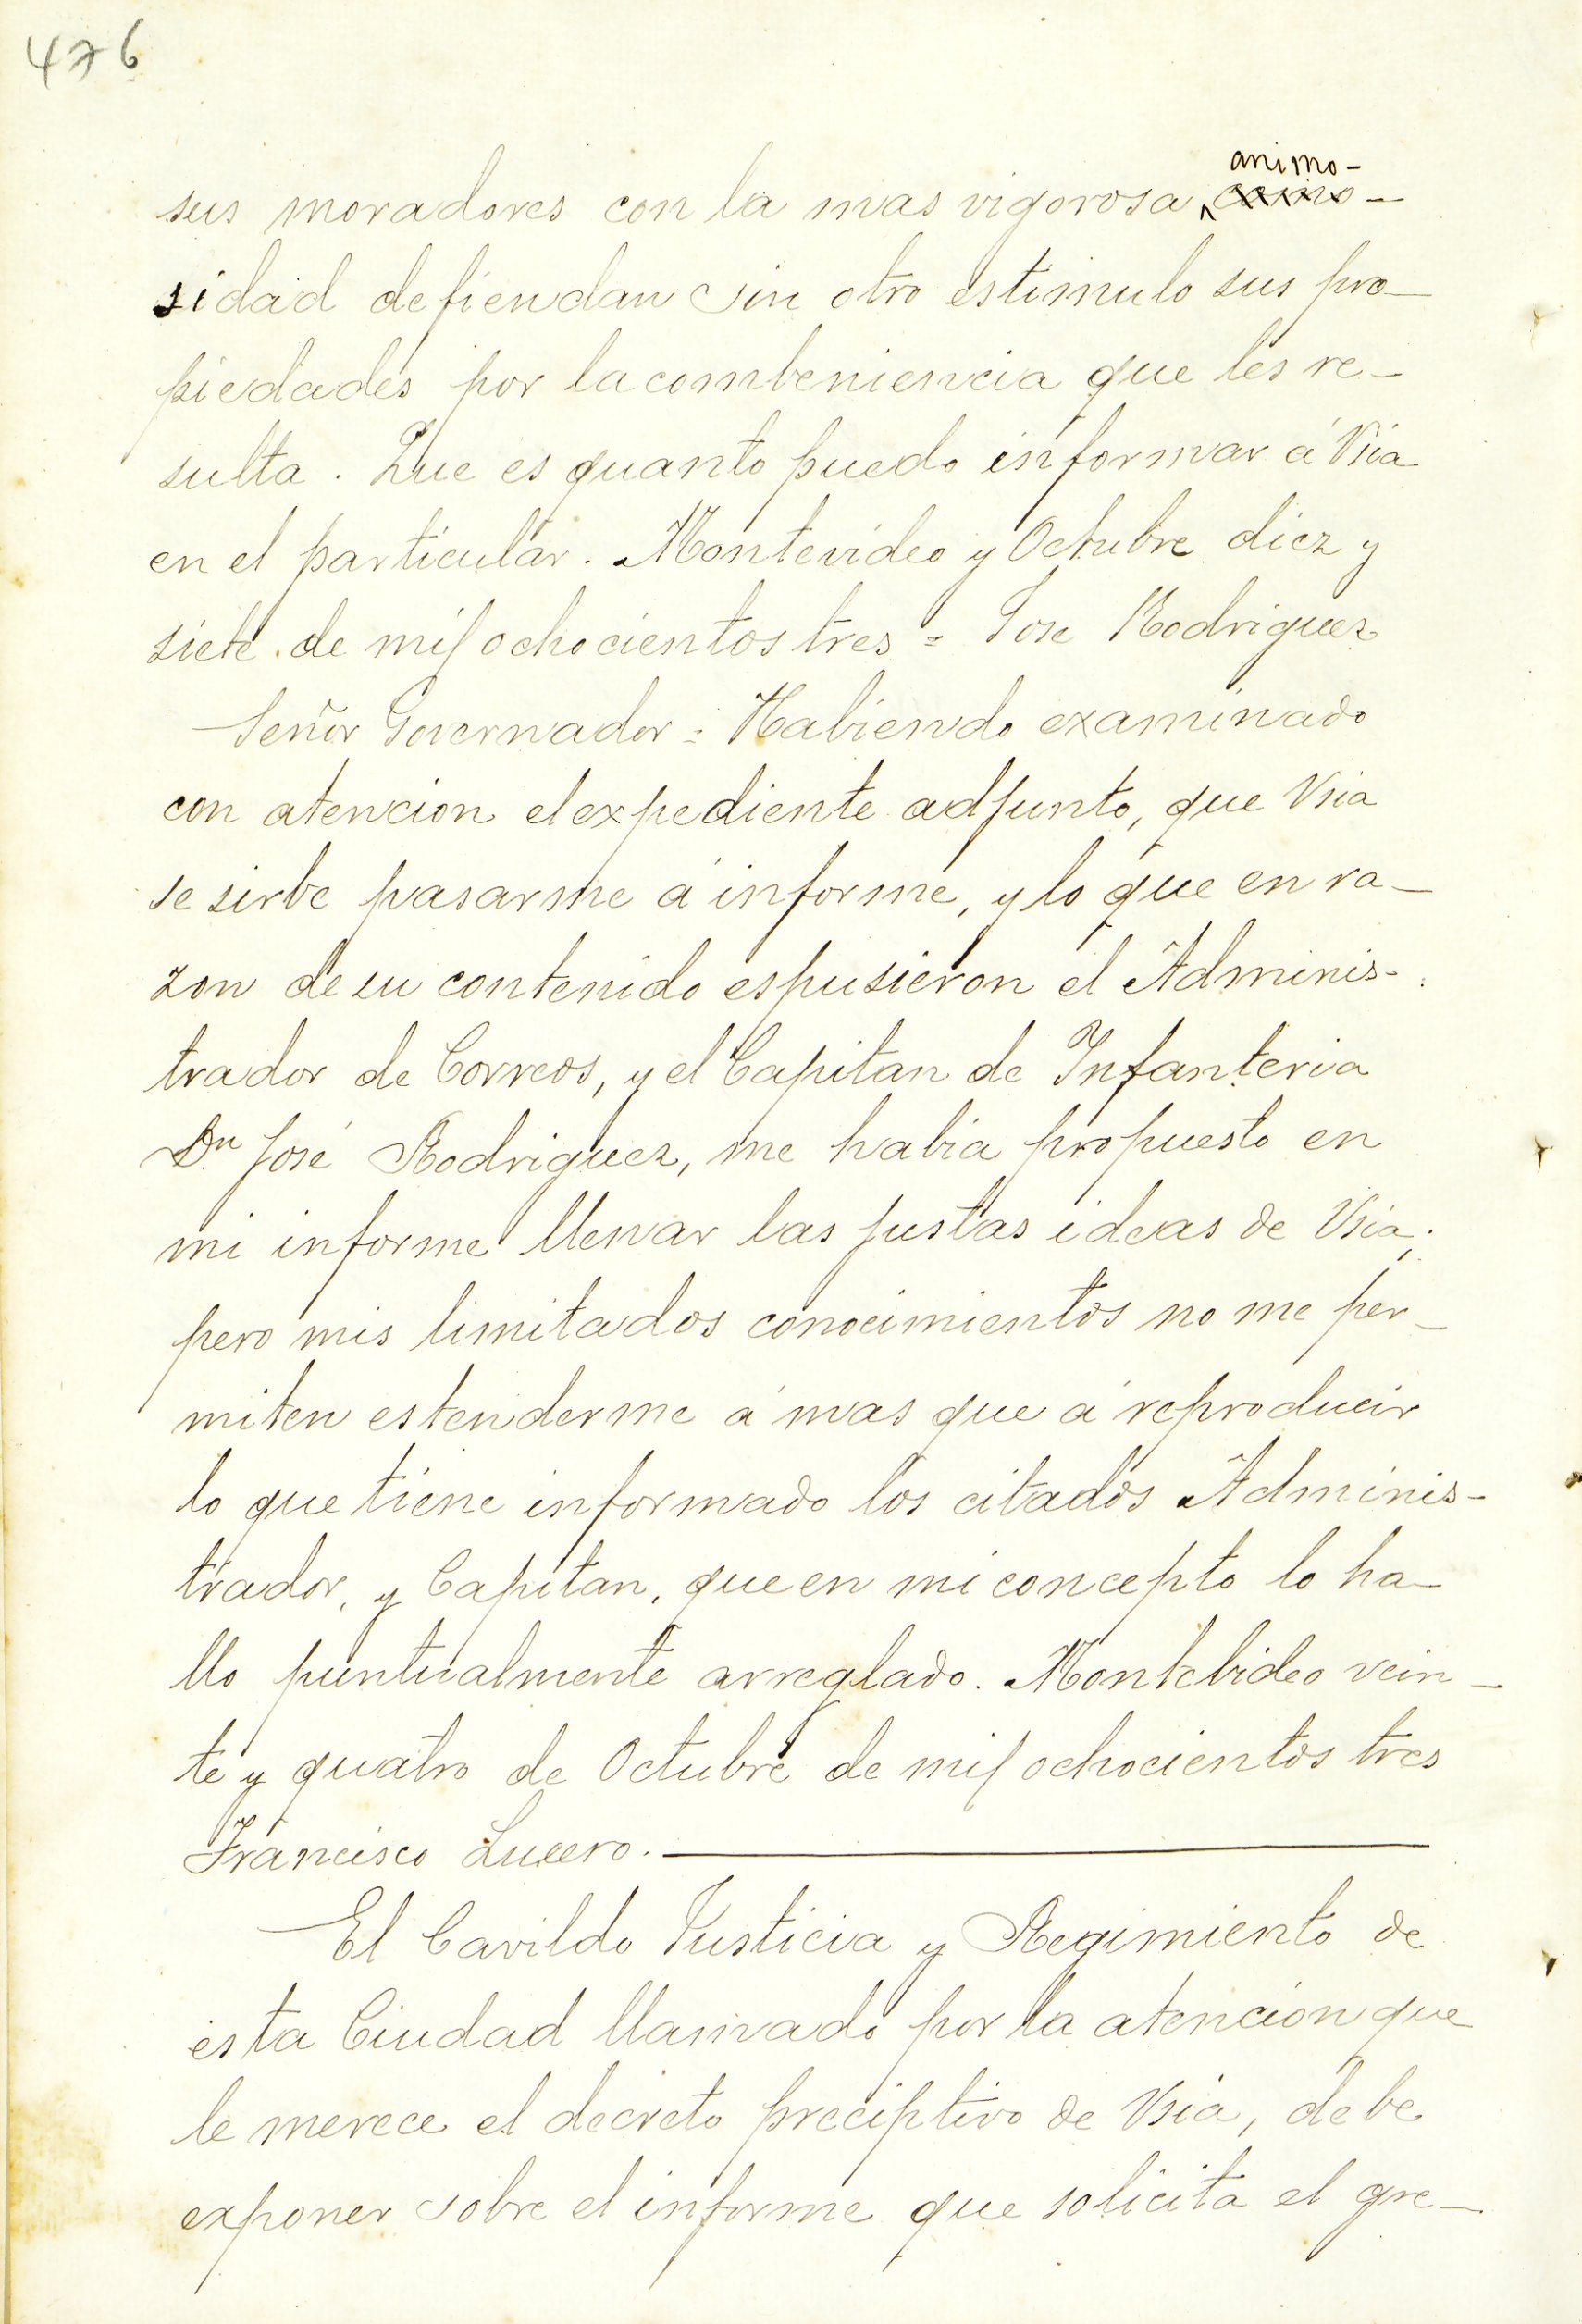 476
sus moradores con la mas vigorosa animo-
sidad defiendan sin otro estimulo sus pro-
piedades por la combeniencia que les re-
sulta. Que es quanto puedo informar á Vsia
en el particular. Montevideo y Octubre diez y
siete de mil ochocientos tres = Jose Rodriguez
Señor Governador = Habiendo examinado
con atencion el expediente adjunto, que Vsia
se sirbe pasarme á informe, y lo que en ra-
zon de su contenido espusieron el Adminis-
trador de Correos, y el Capitan de Infanteria
Dn José Rodriguez, me habia propuesto en
mi informe llenar las justas ideas de Vsia;
pero mis limitados conocimientos no me per-
miten estenderme á mas que á reproducir
lo que tiene informado los citados Adminis-
trador, y Capitan, que en mi concepto lo ha-
llo puntualmente arreglado. Montebideo vein-
te y quatro de Octubre de mil ochocientos tres
Francisco Lucero.
El Cavildo Justicia y Regimiento de
esta Ciudad llamado por la atencion que
le merece el decreto preciptivo de Vsia, debe
exponer sobre el informe que solicita el gre-